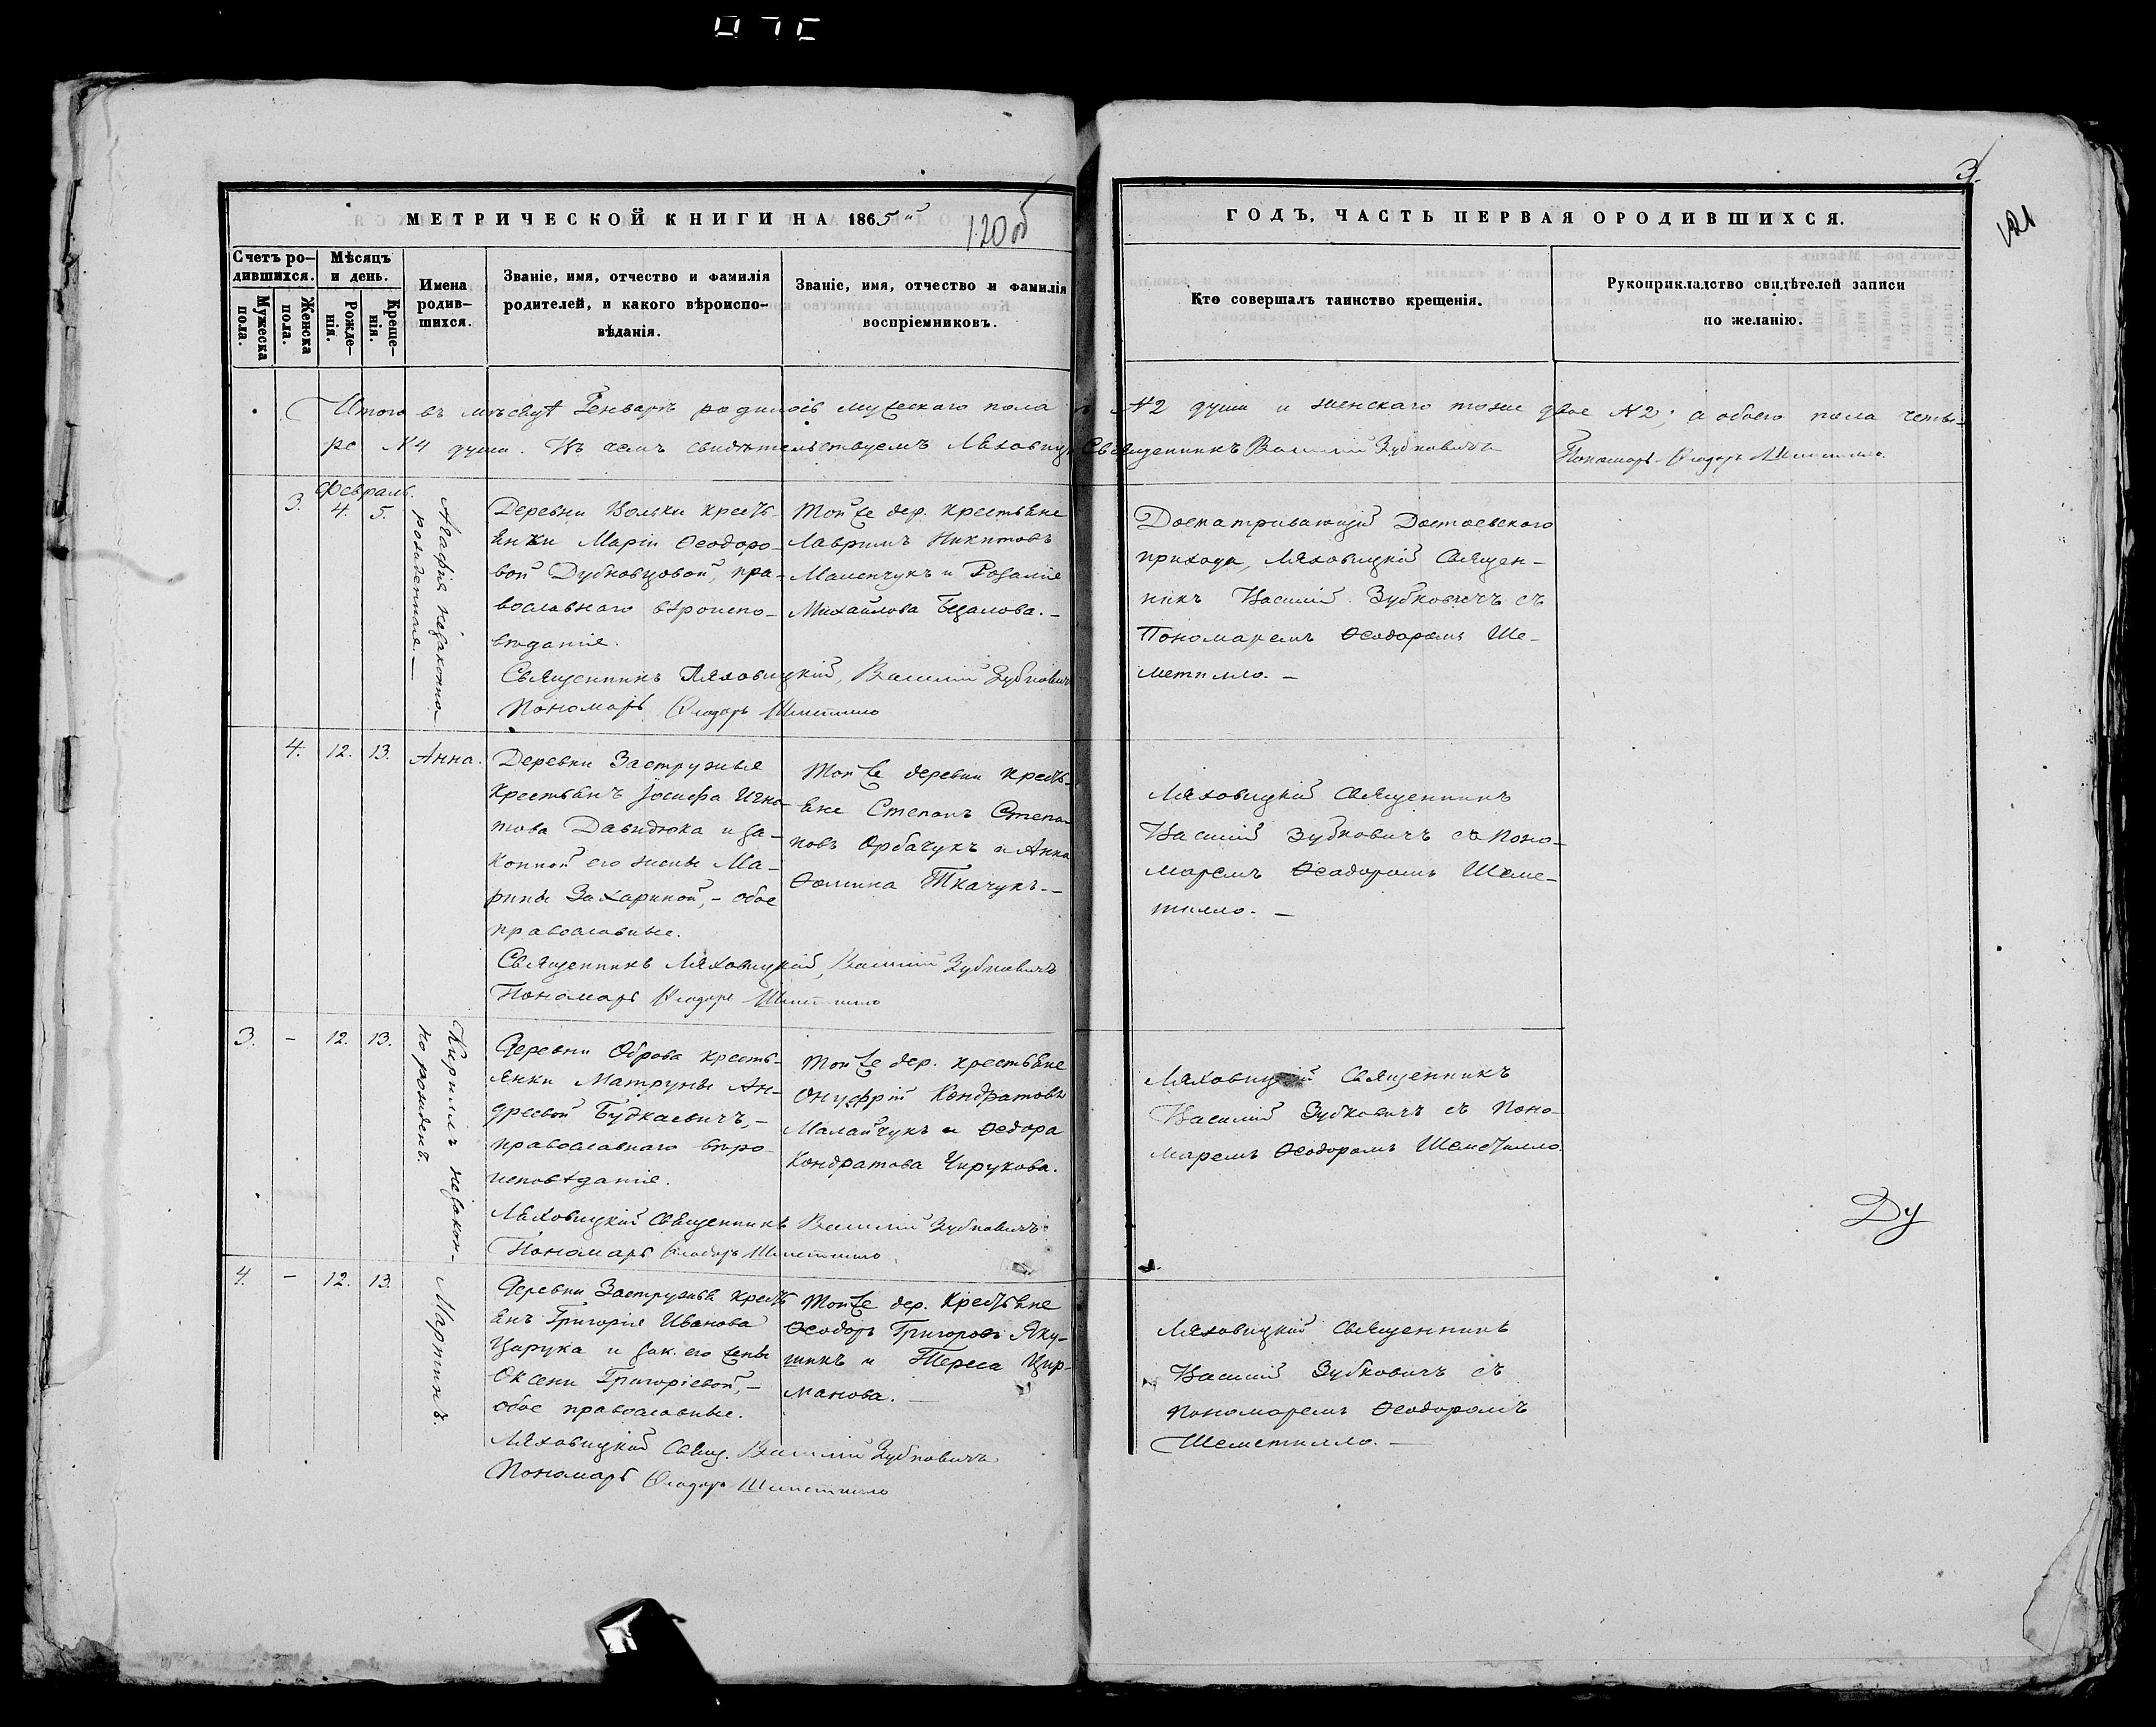 МЕТРИЧЕСКОЙ КНИГИ НА 1865й
120 об
ГОДЪ, ЧАСТЬ ПЕРВАЯ О РОДИВШИХСЯ.
3
121
Счетъ ро-
дившихся.
Мужеска
пола.
Женска
пола.
Мѣсяцъ
и день.
Рожде-
нія.
Креще-
нія.
Имена
родив-
шихся.
Званіе, имя, отчество и фамилія
родителей, и какого вѣроиспо-
вѣданія.
Званіе, имя, отчество и фамилія
воспріемниковъ.
Кто совершалъ таинство крещенія.
Рукоприкладство свидѣтелей записи
по желанію.
Итого въ мѣсяцѣ Генварѣ родилось мужескаго пола № 2 души и женскаго тоже двое № 2; а обоего пола четы-
ре № 4 души. Въ чемъ свидѣтельствуемъ Священникъ Василій Зубковичъ
Пономарь Ѳеодоръ Шеметилло.
Февраль.
3.
4.
5.
Агафія незаконно
рожденная.—
Деревни Вольки кресть-
янки Маріи Ѳеодоро-
вой Дубновцовой, пра-
вославнаго вѣроиспо-
вѣданія.
Священникъ Ляховицкій, Василій Зубковичъ
Пономарь Ѳеодоръ Шеметилло
Той же дер. крестьяне
Лавримъ Никитовъ
Маменчукъ и Розалія
Михайлова Бѣгалова.—
Досматривающій Достоевского
прихода, Ляховицкій Священ-
никъ Василій Зубковичъ съ
Пономаремъ Ѳеодоромъ Ше-
метилло.—
4.
12.
13.
Анна.
Деревни Застружья
Крестьянъ Іосифа Игна-
това Давидюка и за-
конной его жены Ма-
рины Захариной,— обое
православные.
Священникъ Ляховицкій, Василій Зубковичъ
Пономарь Ѳеодоръ Шеметилло
Той же деревни кресть-
яне Степанъ Степа-
новъ Орбачукъ и Анна
Ѳомина Ткачукъ.—
Ляховицкій Священникъ
Василій Зубковичъ съ Поно-
маремъ Ѳеодоромъ Шеме-
тилло.—
3.
–
12.
13.
Кириллъ незакон-
но рожденъ.
Деревни Оброва кресть-
янки Матруны Ан-
дреевой Будкаевичъ,—
православнаго вѣро-
исповѣданія.
Ляховицкій Священникъ Василій Зубковичъ
Пономарь Ѳеодоръ Шеметилло
Той же дер. крестьяне
Онуфрій Кондратовъ
Малайчукъ и Ѳедора
Кондратова Чирукова.
Ляховицкій Священникъ
Василій Зубковичъ съ Поно-
маремъ Ѳеодоромъ Шеметилло.
Ду
4.
–
12.
13.
Мартинъ.
Деревни Застружья Кресть
янъ Григорія Иванова
Цирука и зак. его жены
Оксени Григоріевой,—
обое православные.
Ляховицкій Свящ. Василій Зубковичъ
Пономарь Ѳеодоръ Шеметилло
Той же дер. Крестьяне
Ѳеодоръ Григоровъ Яку-
шикъ и Тереса Цир-
манова.—
Ляховицкій Священникъ
Василій Зубковичъ съ
Пономаремъ Ѳеодоромъ
Шеметилло.—